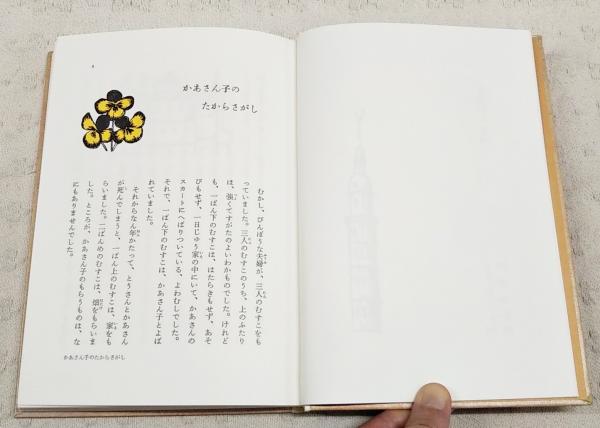 かあさん子の
たからさがし
むかし、びんぼうな夫婦が、三人のむすこをも
っていました。三人のむすこのうち、上のふたり
は、強くてすがたのよいわかものでした。けれど
も、一ばん下のむすこは、はたらきもせず、あそ
びもせず、一日じゅう家の中にいて、かあさんの
スカートにへばりついている、よわむしでした。
それで、一ばん下のむすこは、かあさん子とよば
れていました。
それからなん年かたって、とうさんとかあさん
が死んでしまうと、一ばん上のむすこは、家をも
らいました。二ばんめのむすこは、畑をもらいま
した。ところが、かあさん子のもらうものは、な
にもありませんでした。
かあさん子のたからさがし